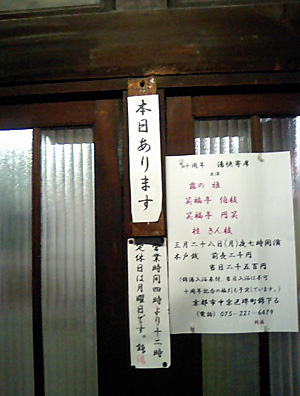 本日あります
営業時間四時より十二時
定休日は月曜日です。錦湯
十周年 湯快寄席
出演
露の 雄
笑福亭 伯枝
笑福亭 円笑
桂 きん枝
三月二十八日(月)夜七時開演
木戸銭 前売二千円
当日二千五百円
(錦湯入浴券付、当日入浴は不可
十周年記念の福引も予定しています。)
京都市中京区堺町錦下る
(電話) 075-221-6479
錦湯